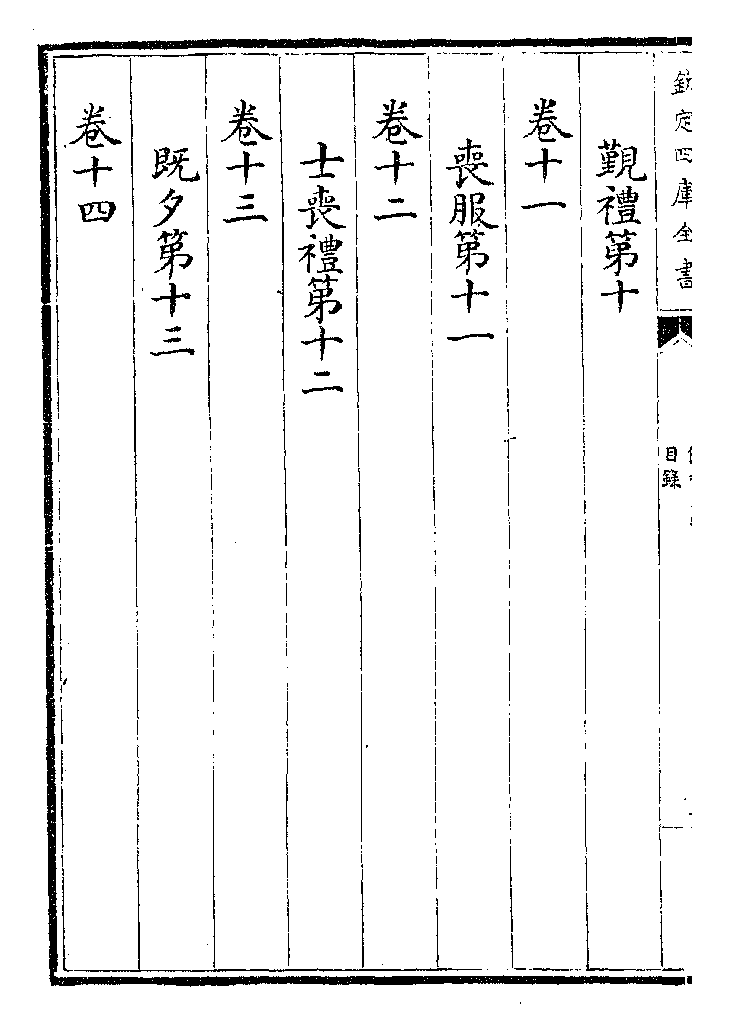 欽定四庫全書
目錄
覲禮第十
卷十一
喪服第十一
卷十二
士喪禮第十二
卷十三
既夕第十三
卷十四